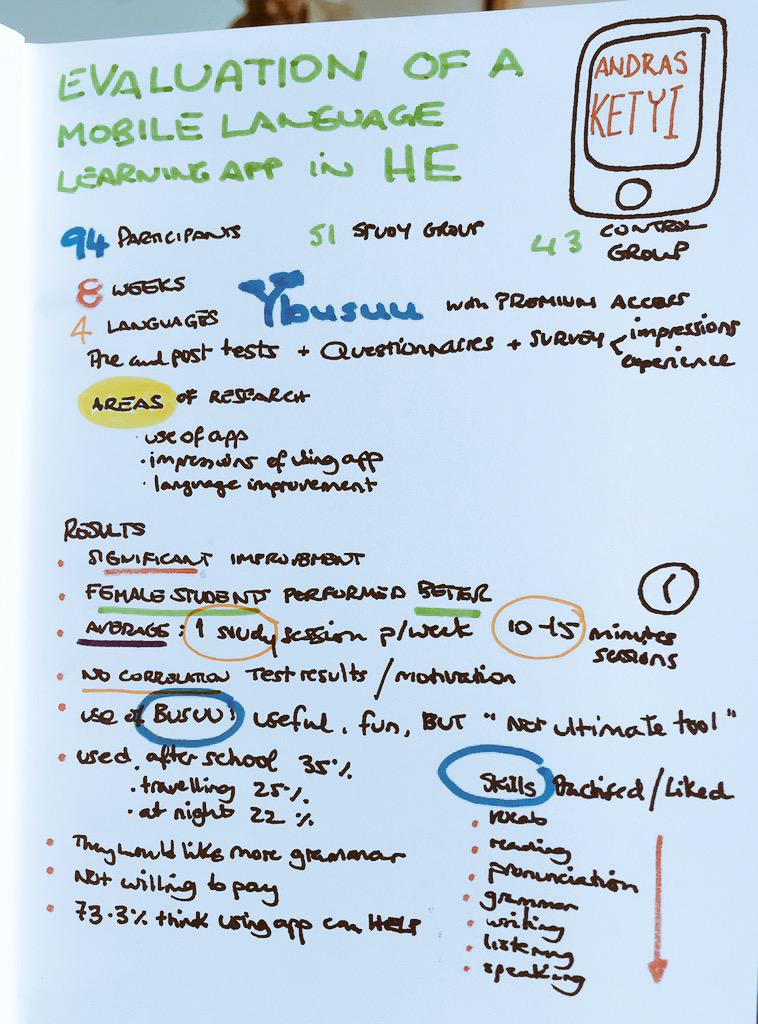 EVALUATION OF A
MOBILE LANGUAGE
LEARNING APP in HE
ANDRAS
KETYI
94 PARTICIPANTS
51 STUDY GROUP
43 CONTROL
GROUP
8 WEEKS
4 LANGUAGES
busuu with PREMIUM ACCESS
Pre and post tests + Questionnaires + SURVEY < impressions
experience
AREAS OF RESEARCH
· use of app
· impressions of using app
· language improvement
RESULTS
• SIGNIFICANT IMPROVEMENT
• FEMALE STUDENTS PERFORMED BETTER
• AVERAGE: 1 study session p/week 10-15 minutes
sessions
1
• NO CORRELATION Test results / motivation
• use of BUSUU: useful, fun, BUT "Not ultimate tool"
• used. after school 35%
· travelling 25%
· at night 22%
• They would like more grammar
• Not willing to pay
• 73.3% think using app can HELP
Skills Practised / Liked
• vocab
• reading
• pronunciation
• grammar
• writing
• listening
• speaking